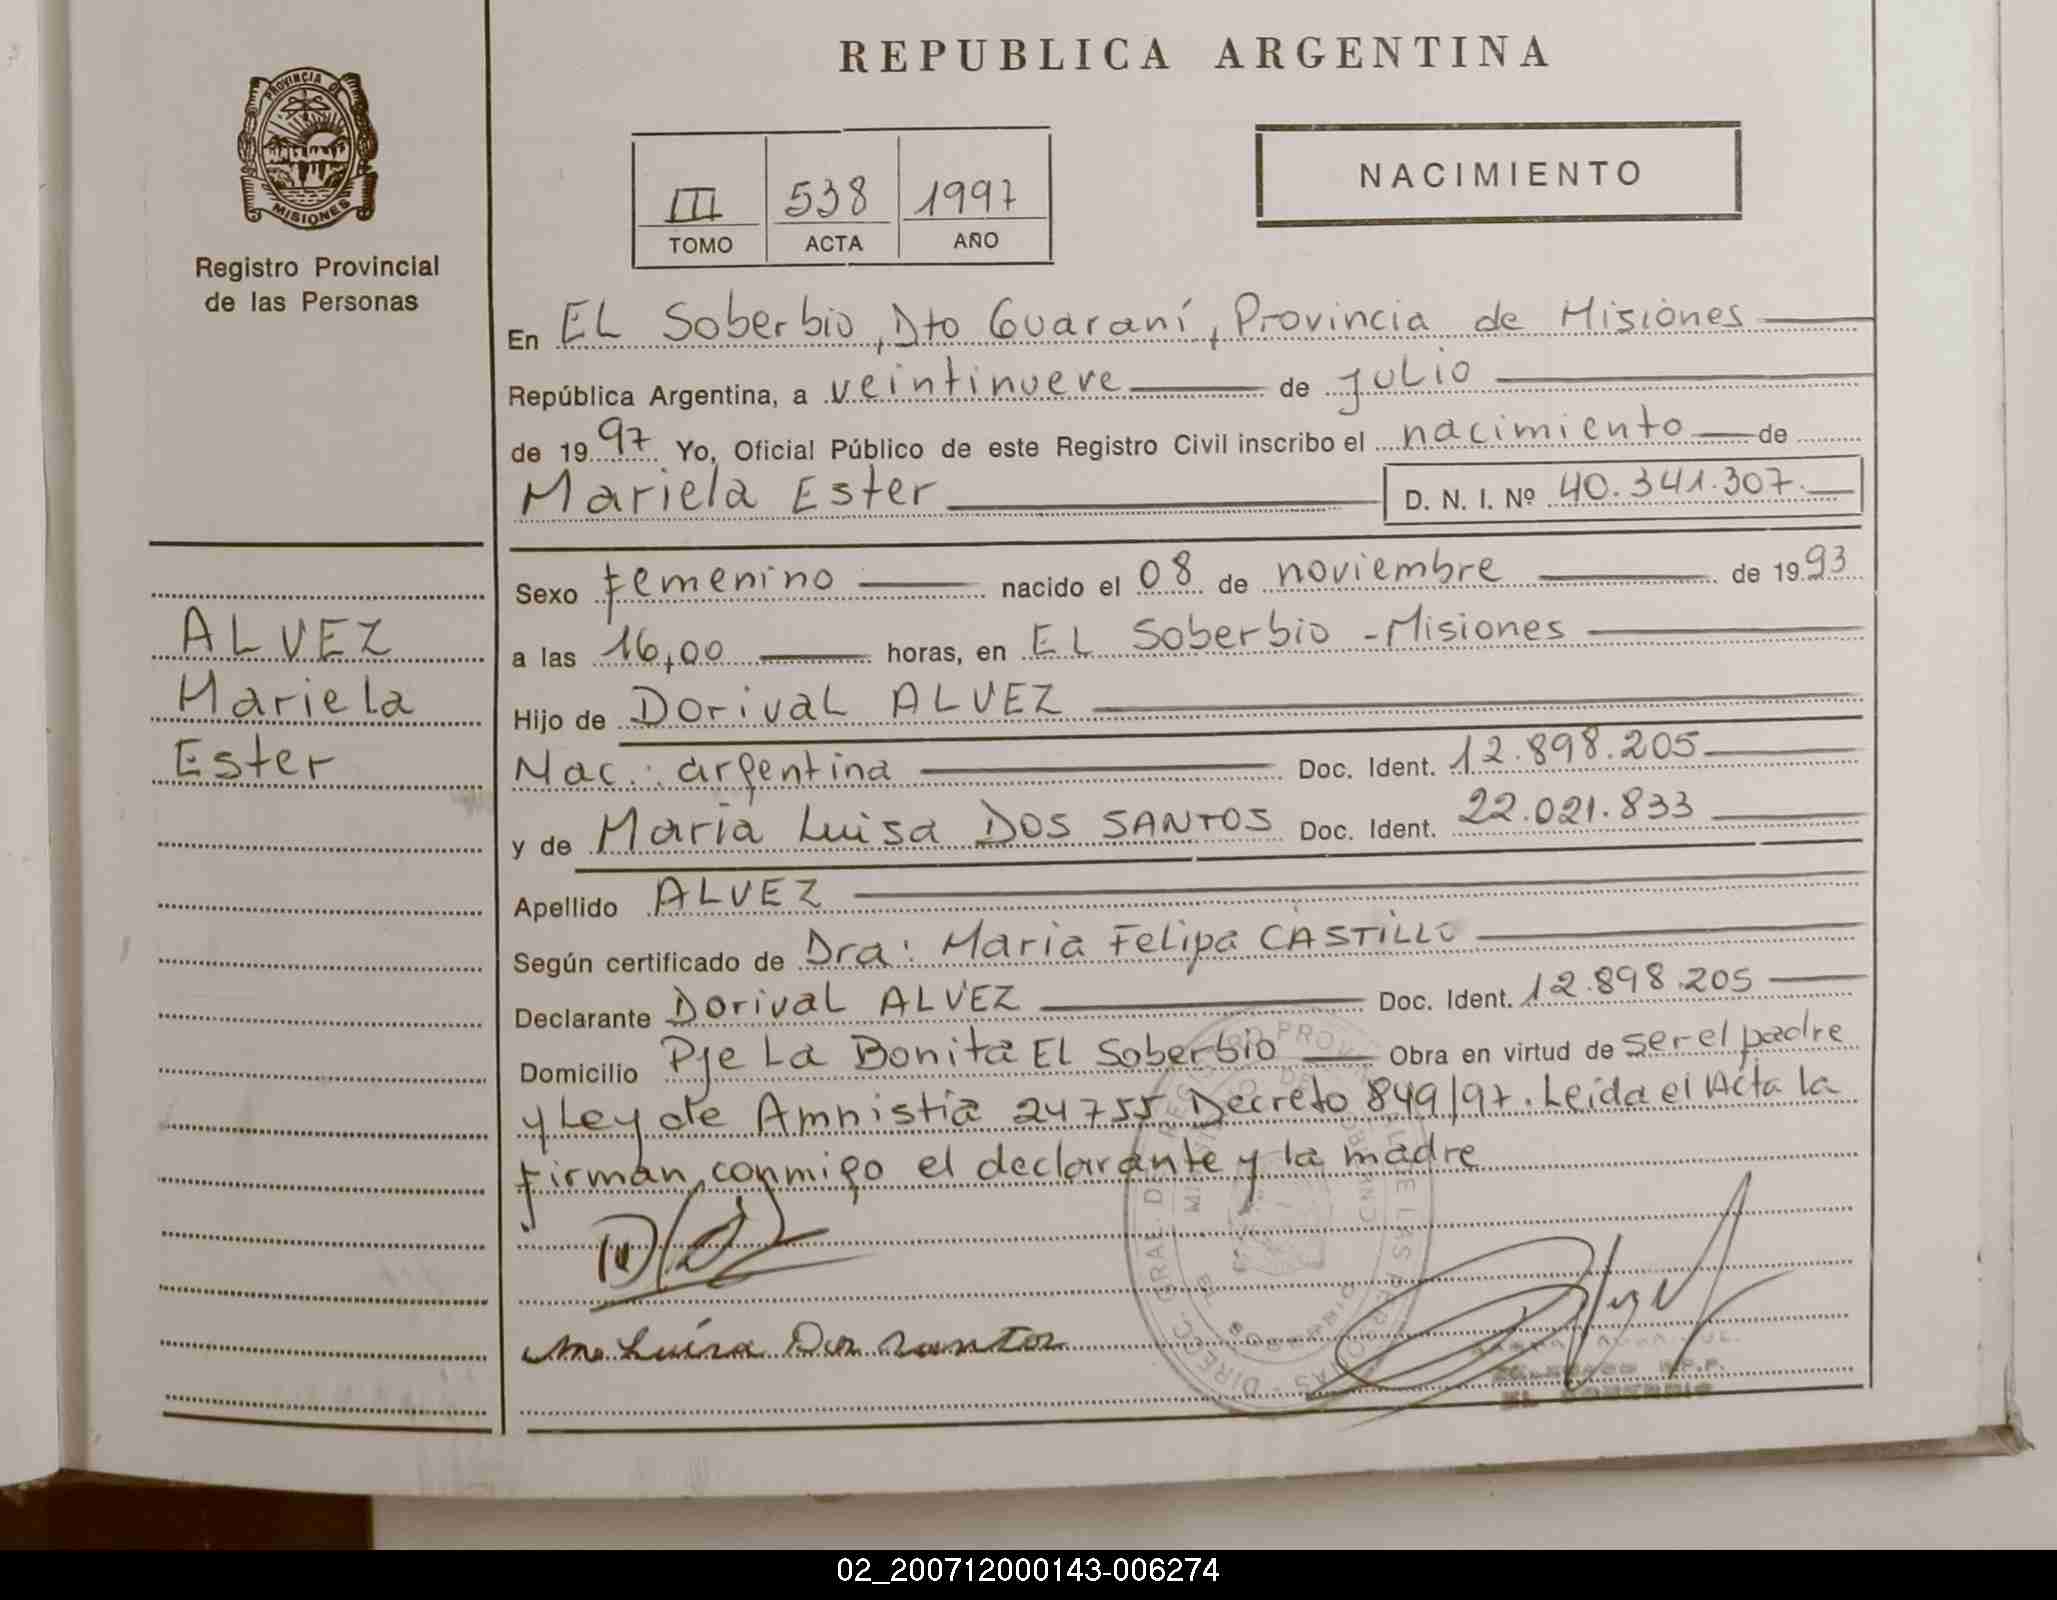 REPUBLICA ARGENTINA
PROVINCIA DE
MISIONES
Registro Provincial
de las Personas
III 538 1997
TOMO ACTA AÑO
NACIMIENTO
En EL Soberbio, Dto Guaraní, Provincia de Misiones
República Argentina, a veintinueve de julio
de 1997 Yo, Oficial Público de este Registro Civil inscribo el nacimiento de
Mariela Ester D. N. I. Nº 40.341.307.
Sexo femenino nacido el 08 de noviembre de 1993
a las 16,00 horas, en EL Soberbio - Misiones
Hijo de Dorival ALVEZ
Nac.: argentina Doc. Ident. 12.898.205
y de Maria Luisa DOS SANTOS Doc. Ident. 22.021.833
Apellido ALVEZ
Según certificado de Dra: Maria Felipa CASTILLO
Declarante Dorival ALVEZ Doc. Ident. 12.898.205
Domicilio Pje La Bonita El Soberbio Obra en virtud de ser el padre
y Ley de Amnistia 24755 Decreto 849/97. Leida el Acta la
firman conmigo el declarante y la madre
ALVEZ
Mariela
Ester
Ma Luisa Dos santos
EL SOBERBIO
02_200712000143-006274